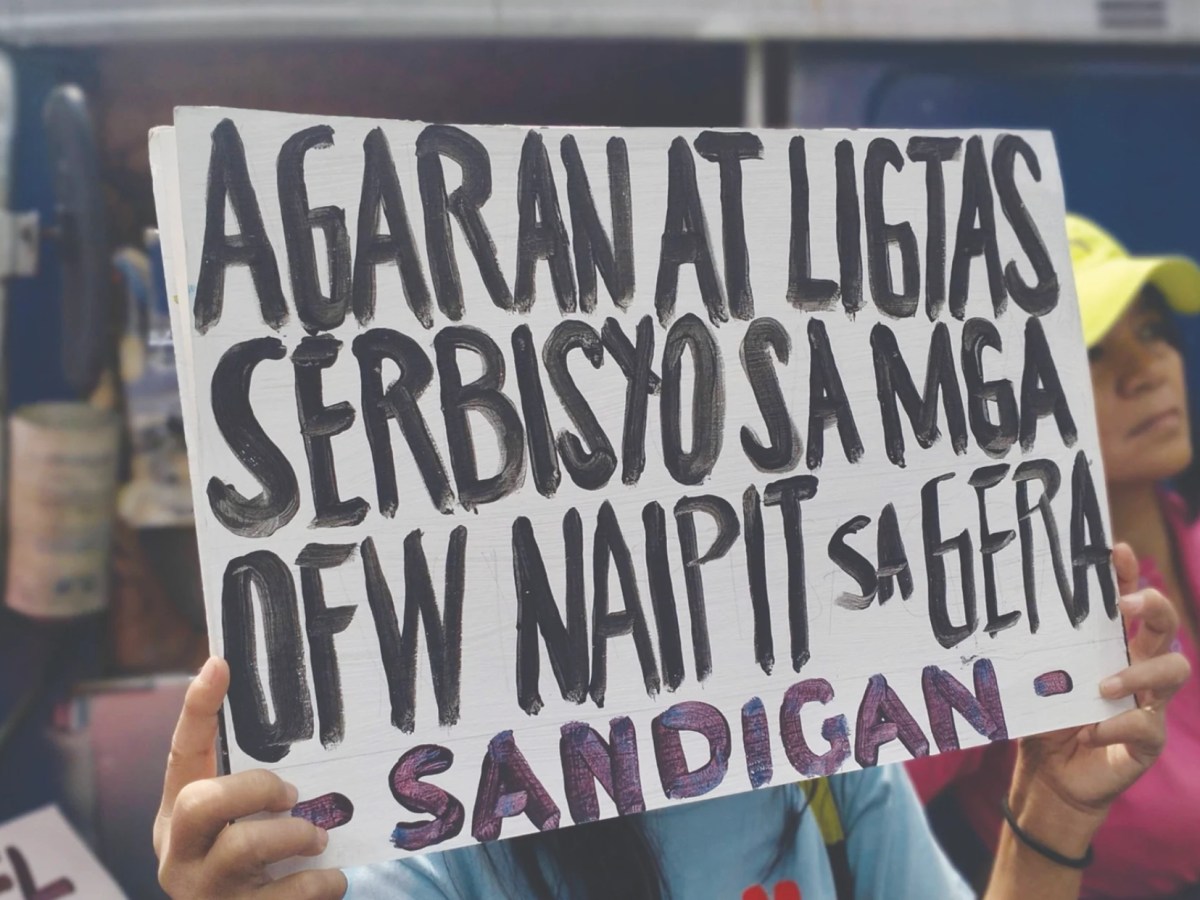 AGARAN AT LIGTAS
SERBISYO SA MGA
OFW NAIPIT SA GERA
- SANDIGAN -